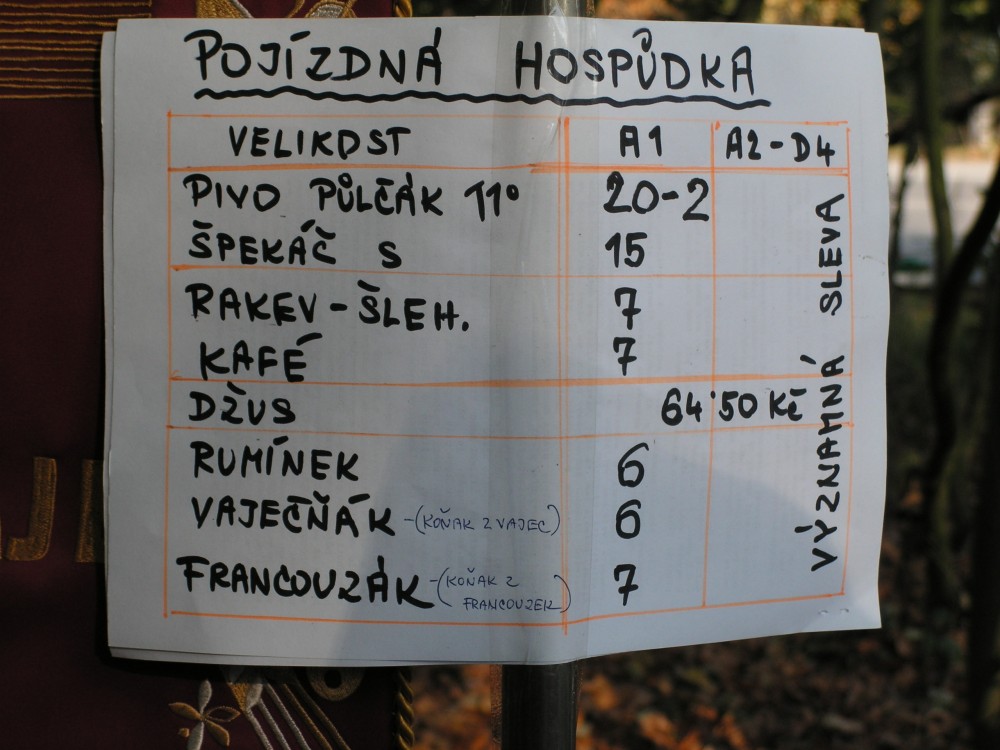 POJÍZDNÁ HOSPŮDKA
VELIKOST A1 A2-D4
PIVO PŮLČÁK 11° 20-2
ŠPEKÁČ S 15
RAKEV-ŠLEH. 7
KAFÉ 7
DŽUS 64'50 Kč
RUMÍNEK 6
VAJEČŇÁK -(KOŇAK Z VAJEC) 6
FRANCOUZÁK -(KOŇAK Z
FRANCOUZEK) 7
VÝZNAMNÁ SLEVA